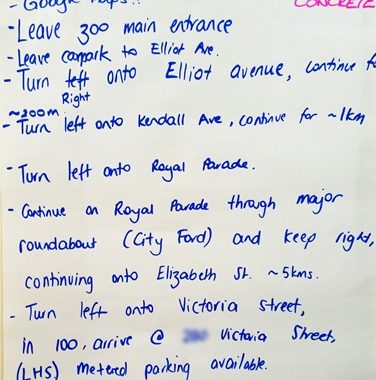 - Google Maps!!
CONCRETE
- Leave zoo main entrance
- Leave carpark to Elliot Ave.
- Turn left onto Elliot avenue, continue for
Right
~200m
- Turn left onto Kendall Ave, continue for ~1km
- Turn left onto Royal Parade.
- Continue on Royal Parade through major
roundabout (City Ford) and keep right,
continuing onto Elizabeth St. ~5kms.
- Turn left onto Victoria street,
in 100, arrive @ Victoria Street,
(LHS) metered parking available.